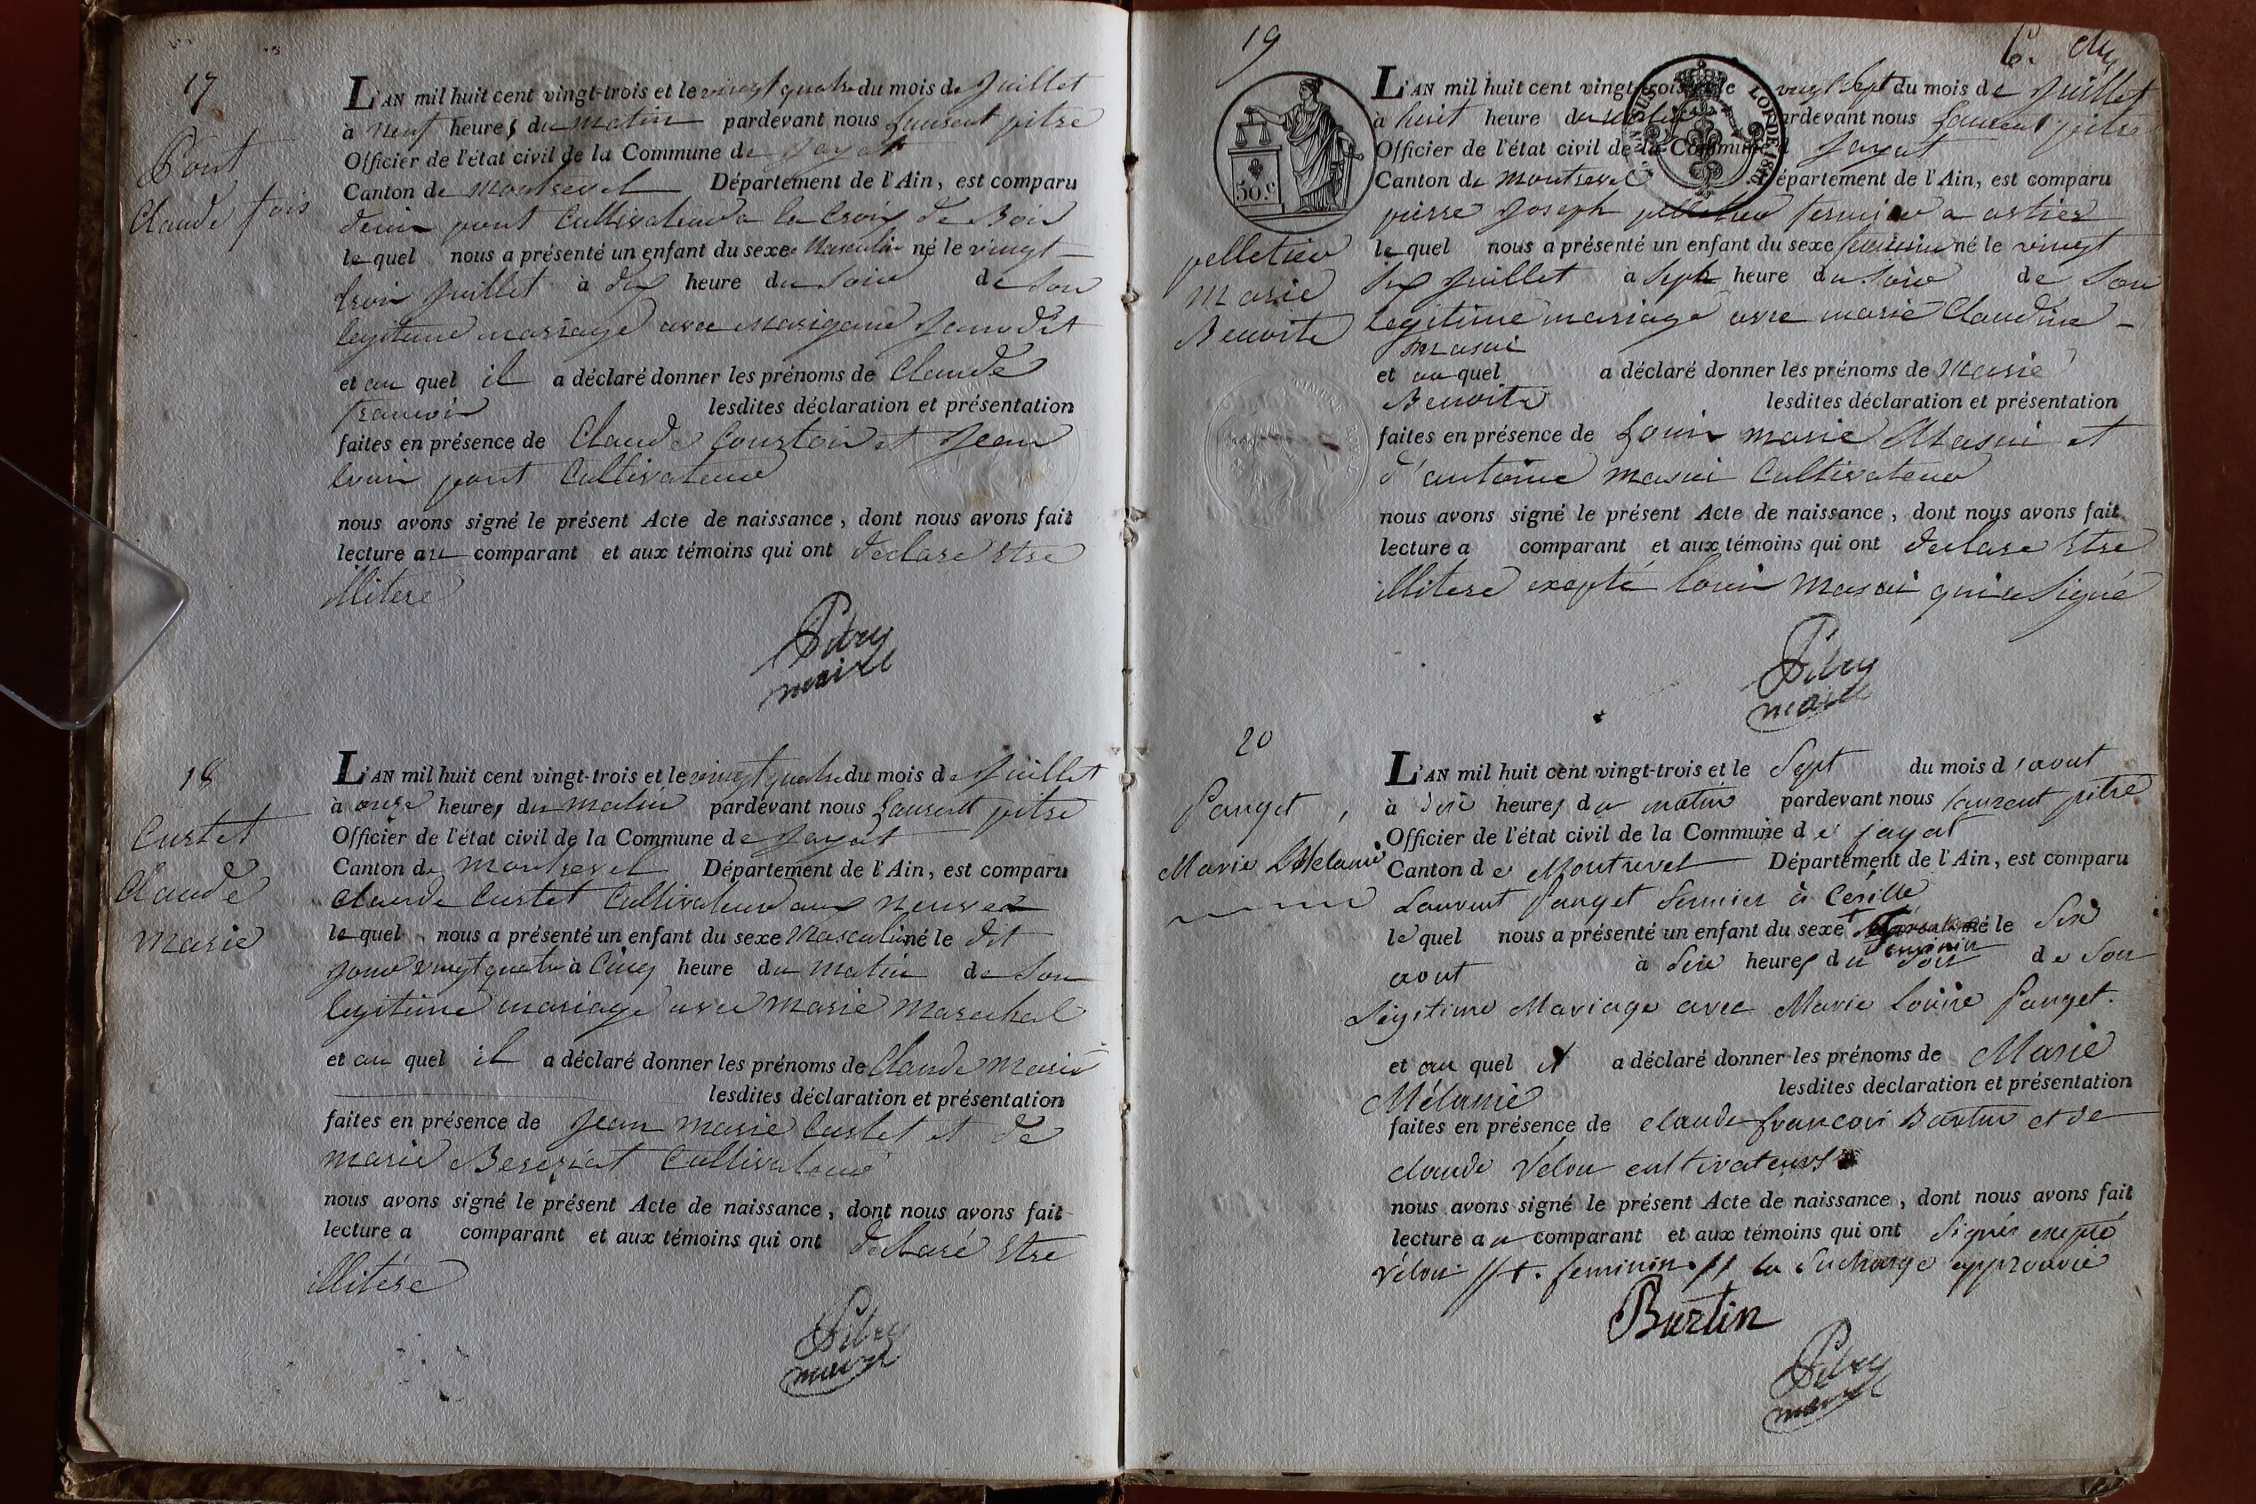 17
Pont
Claude fois
L'AN mil huit cent vingt-trois et le vingt quatre du mois de Juillet
à neuf heures du matin pardevant nous Laurent pitre
Officier de l'état civil de la Commune de Jayat
Canton de Montrevel Département de l'Ain, est comparu
denis pont Cultivateur a la Croix de Bois
le quel nous a présenté un enfant du sexe Masculin né le vingt
trois Juillet à dix heure du soir de son
legitime mariage avec
et au quel il a déclaré donner les prénoms de Claude
francois lesdites déclaration et présentation
faites en présence de Claude et Jean
Louis pont Cultivateur
nous avons signé le présent Acte de naissance, dont nous avons fait
lecture au comparant et aux témoins qui ont declare Etre
illitere
Pitre
maire
18
Curtet
Claude
Marie
L'AN mil huit cent vingt-trois et le vingt quatre du mois de Juillet
à onze heures du matin pardevant nous Laurent pitre
Officier de l'état civil de la Commune de Jayat
Canton de Montrevel Département de l'Ain, est comparu
Claude Curtet Cultivateur aux
le quel nous a présenté un enfant du sexe Masculin né le dit
jour vingt quatre à Cinq heure du Matin de Son
legitime mariage avec Marie Marechal
et au quel il a déclaré donner les prénoms de Claude Marie
lesdites déclaration et présentation
faites en présence de Jean Marie Curtet et de
Marie Bereziat Cultivateur
nous avons signé le présent Acte de naissance, dont nous avons fait
lecture a comparant et aux témoins qui ont declaré Etre
illitére
Pitre
maire
19
6.
50 c
LOI DE 1816
pelletier
Marie
Benoite
L'AN mil huit cent vingt-trois et le vingt Sept du mois de Juillet
à huit heure du matin pardevant nous Laurent pitre
Officier de l'état civil de la Commune d Jayat
Canton de Montrevel Département de l'Ain, est comparu
pierre Joseph pelletier fermier a
le quel nous a présenté un enfant du sexe feminin né le vingt
six Juillet a Sept heure du Soir de Son
legitime mariage avec marie Claudine
Masui
et au quel a déclaré donner les prénoms de Marie
Benoite lesdites déclaration et présentation
faites en présence de Louis marie Masui et
d'antoine masui Cultivateur
nous avons signé le présent Acte de naissance, dont nous avons fait
lecture a comparant et aux témoins qui ont declare Etre
illitere exepté Louis Masui qui a Signé
Pitre
maire
20
Panget
Marie Mélanie
L'AN mil huit cent vingt-trois et le Sept du mois d'aout
à dix heures du matin pardevant nous laurent pitre
Officier de l'état civil de la Commune de jayat
Canton de Montrevel Département de l'Ain, est comparu
Laurent Panget fermier à Cerille
le quel nous a présenté un enfant du sexe né le Six
feminin
aout à Six heures du Soir de Son
Légitime Mariage avec Marie Louise Panget.
et au quel il a déclaré donner les prénoms de Marie
Mélanie lesdites déclaration et présentation
faites en présence de claude francois Burtin et de
claude Velon cultivateurs
nous avons signé le présent Acte de naissance, dont nous avons fait
lecture au comparant et aux témoins qui ont Signés excepté
Vélon // † feminin // la Surcharge approuvée
Burtin
Pitre
maire